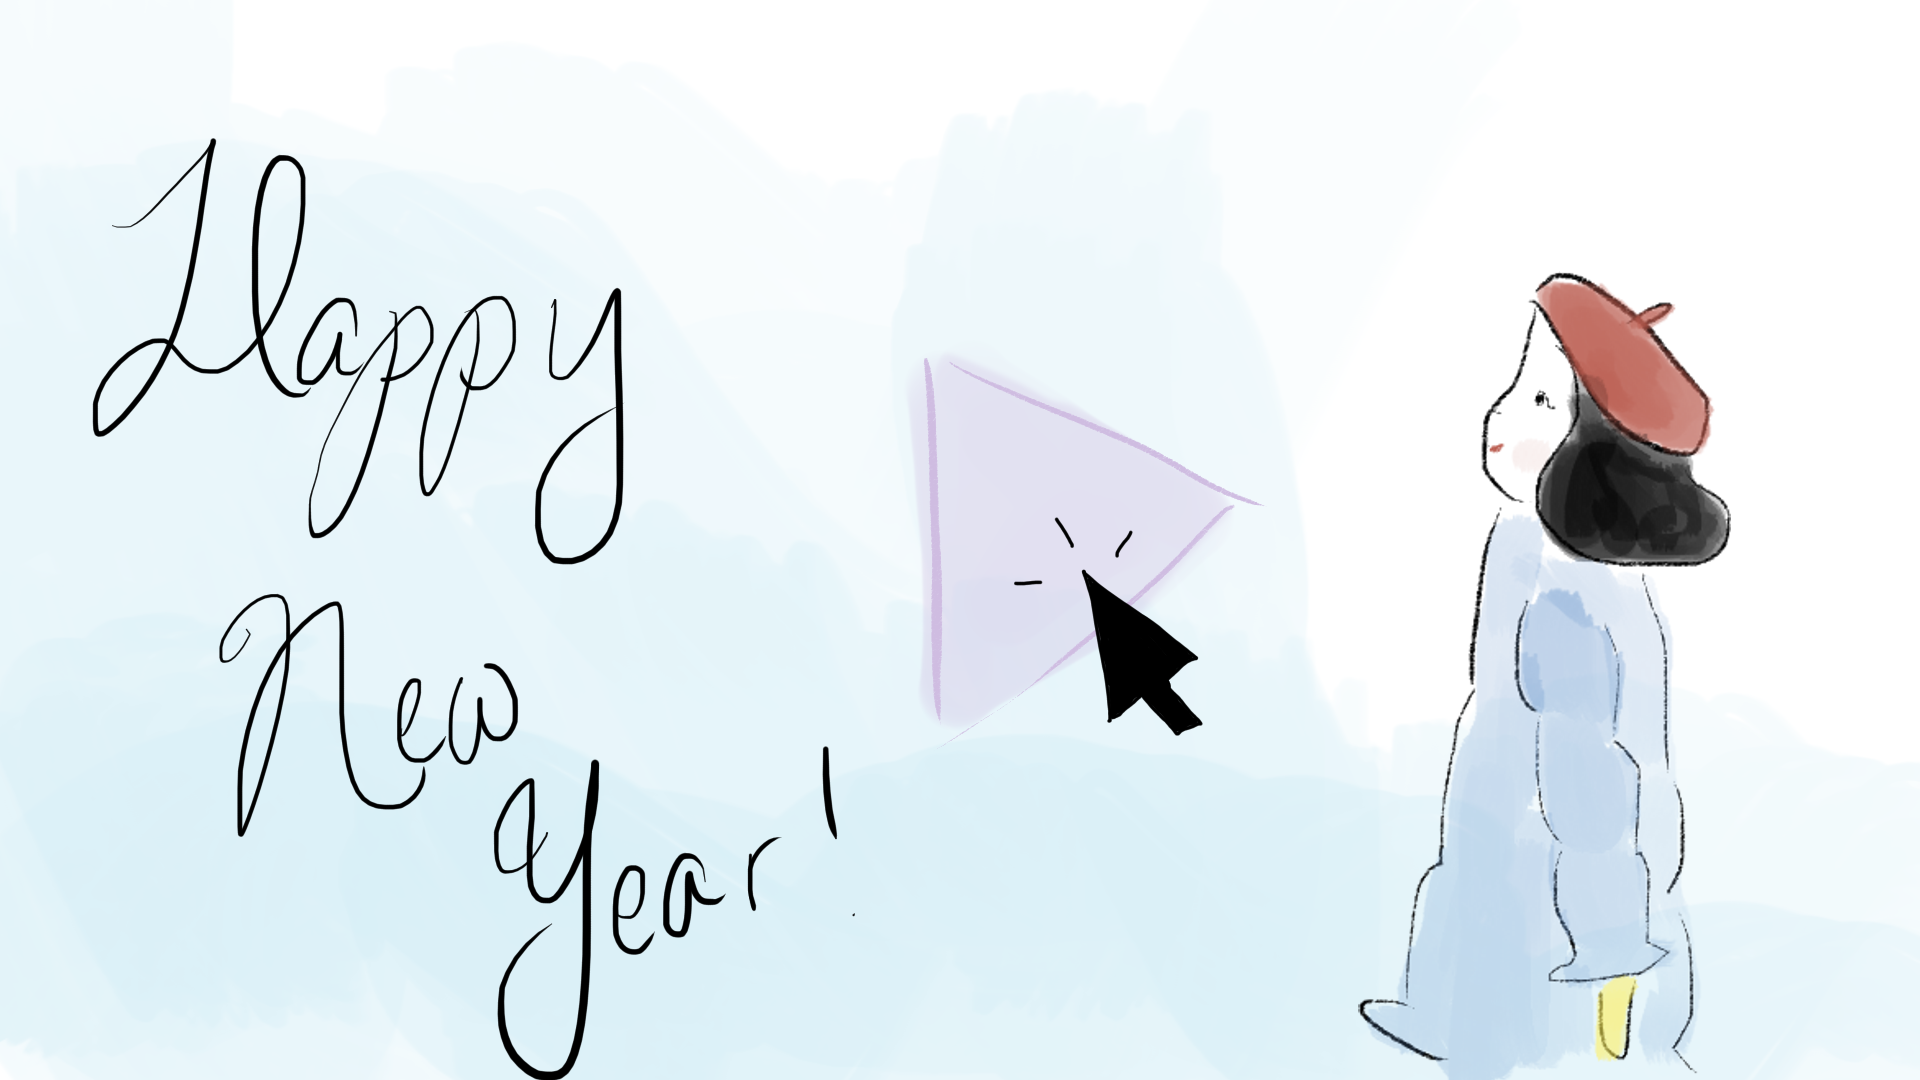 Happy
New
Year!